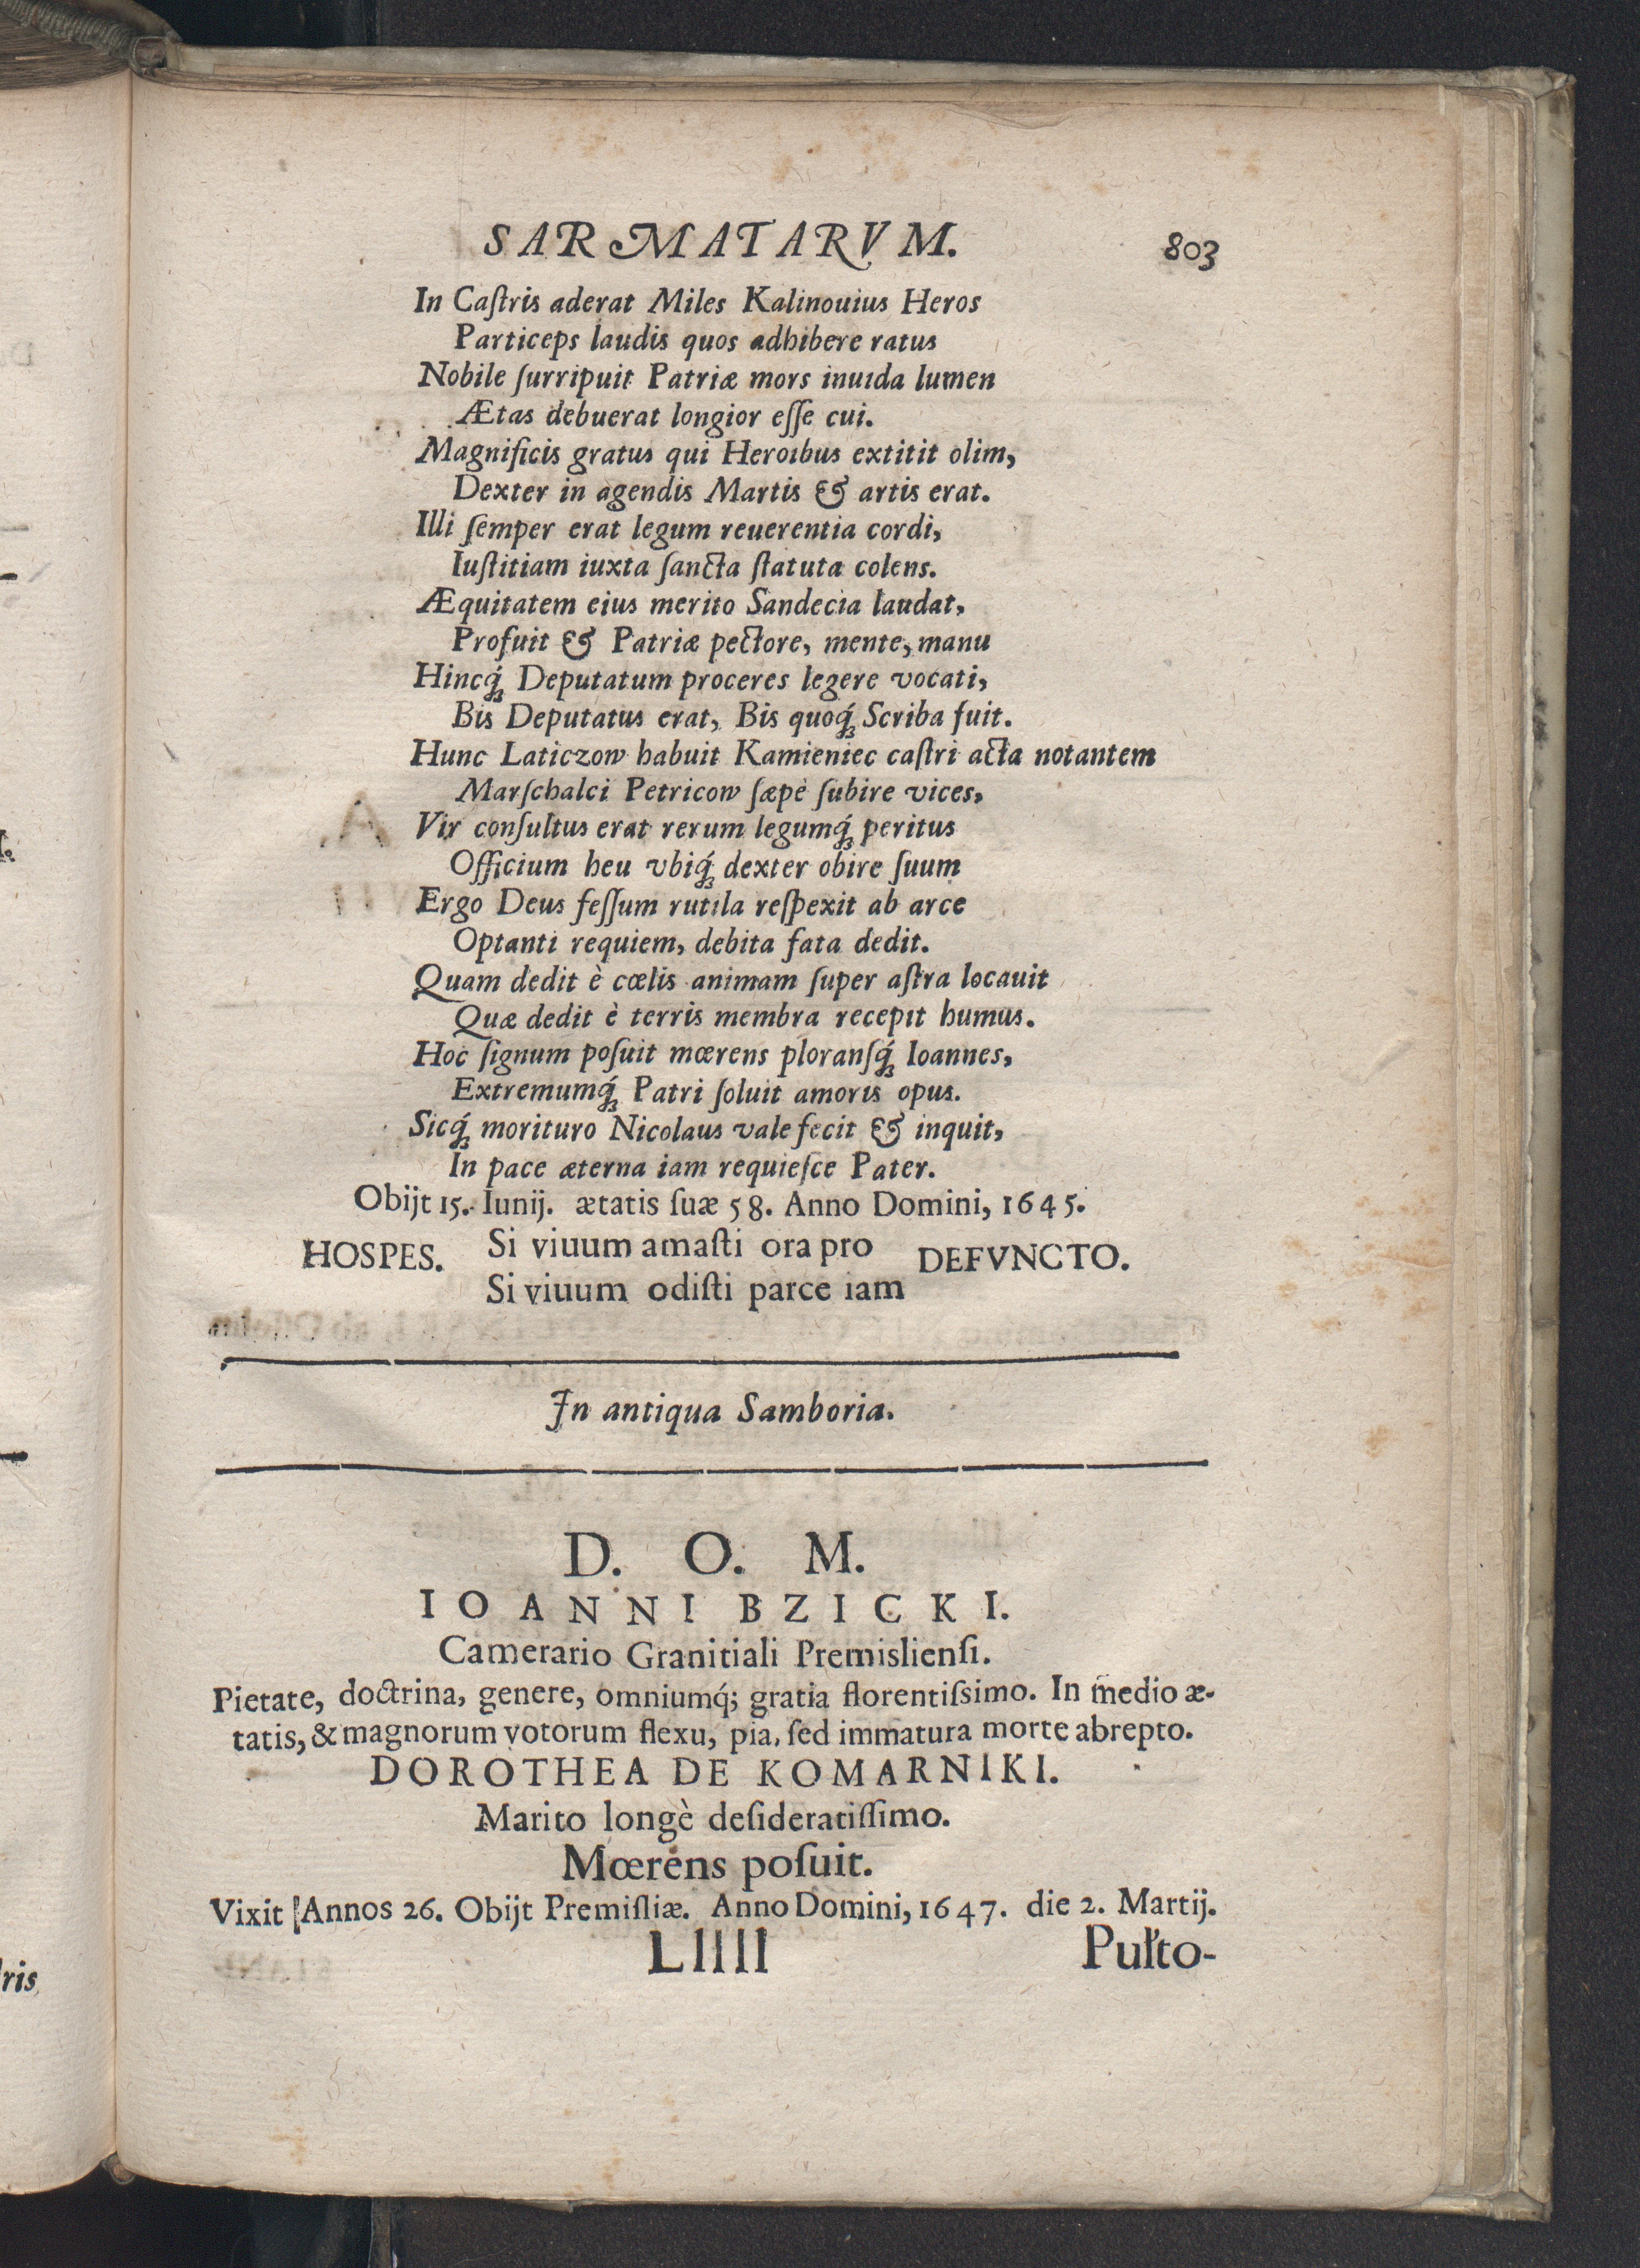 SARMATARVM. 803
In Caſtris aderat Miles Kalinouius Heros
Particeps laudis quos adhibere ratus
Nobile ſurripuit Patriæ mors inuıda lumen
Ætas debuerat longior eſſe cui.
Magnificis gratus qui Heroıbus extitit olim,
Dexter in agendis Martis & artis erat.
Illi ſemper erat legum reuerentia cordi,
Iuſtitiam iuxta ſancta ſtatuta colens.
Æquitatem eius merito Sandecia laudat,
Profuit & Patriæ pectore, mente, manu
Hincq́ꝫ Deputatum proceres legere vocati,
Bis Deputatus erat, Bis quoq́ꝫ Scriba fuit.
Hunc Laticzow habuit Kamieniec caſtri acta notantem
Marſchalci Petricow ſæpè ſubire vices,
Vir conſultus erat rerum legumq́ꝫ peritus
Officium heu vbiq́ꝫ dexter obire ſuum
Ergo Deus feſſum rutila reſpexit ab arce
Optanti requiem, debita fata dedit.
Quam dedit è cœlis animam ſuper aſtra locauit
Quæ dedit è terris membra recepıt humus.
Hoc ſignum poſuit mœrens ploranſq́ꝫ Ioannes,
Extremumq́ꝫ Patri ſoluit amoris opus.
Sicq́ꝫ morituro Nicolaus vale fecit & inquit,
In pace æterna iam requieſce Pater.
Obijt 15. Iunij. ætatis ſuæ 58. Anno Domini, 1645.
HOSPES. Si viuum amaſti ora pro DEFVNCTO.
Si viuum odiſti parce iam
In antiqua Samboria.
D. O. M.
IOANNI BZICKI.
Camerario Granitiali Premislienſi.
Pietate, doctrina, genere, omniumq́; gratia florentiſsimo. In medio æ-
tatis, & magnorum votorum flexu, pia, ſed immatura morte abrepto.
DOROTHEA DE KOMARNIKI.
Marito longè deſideratiſſimo.
Mœrens poſuit.
Vixit Annos 26. Obijt Premiſliæ. Anno Domini, 1647. die 2. Martij.
LIIII Pułto-